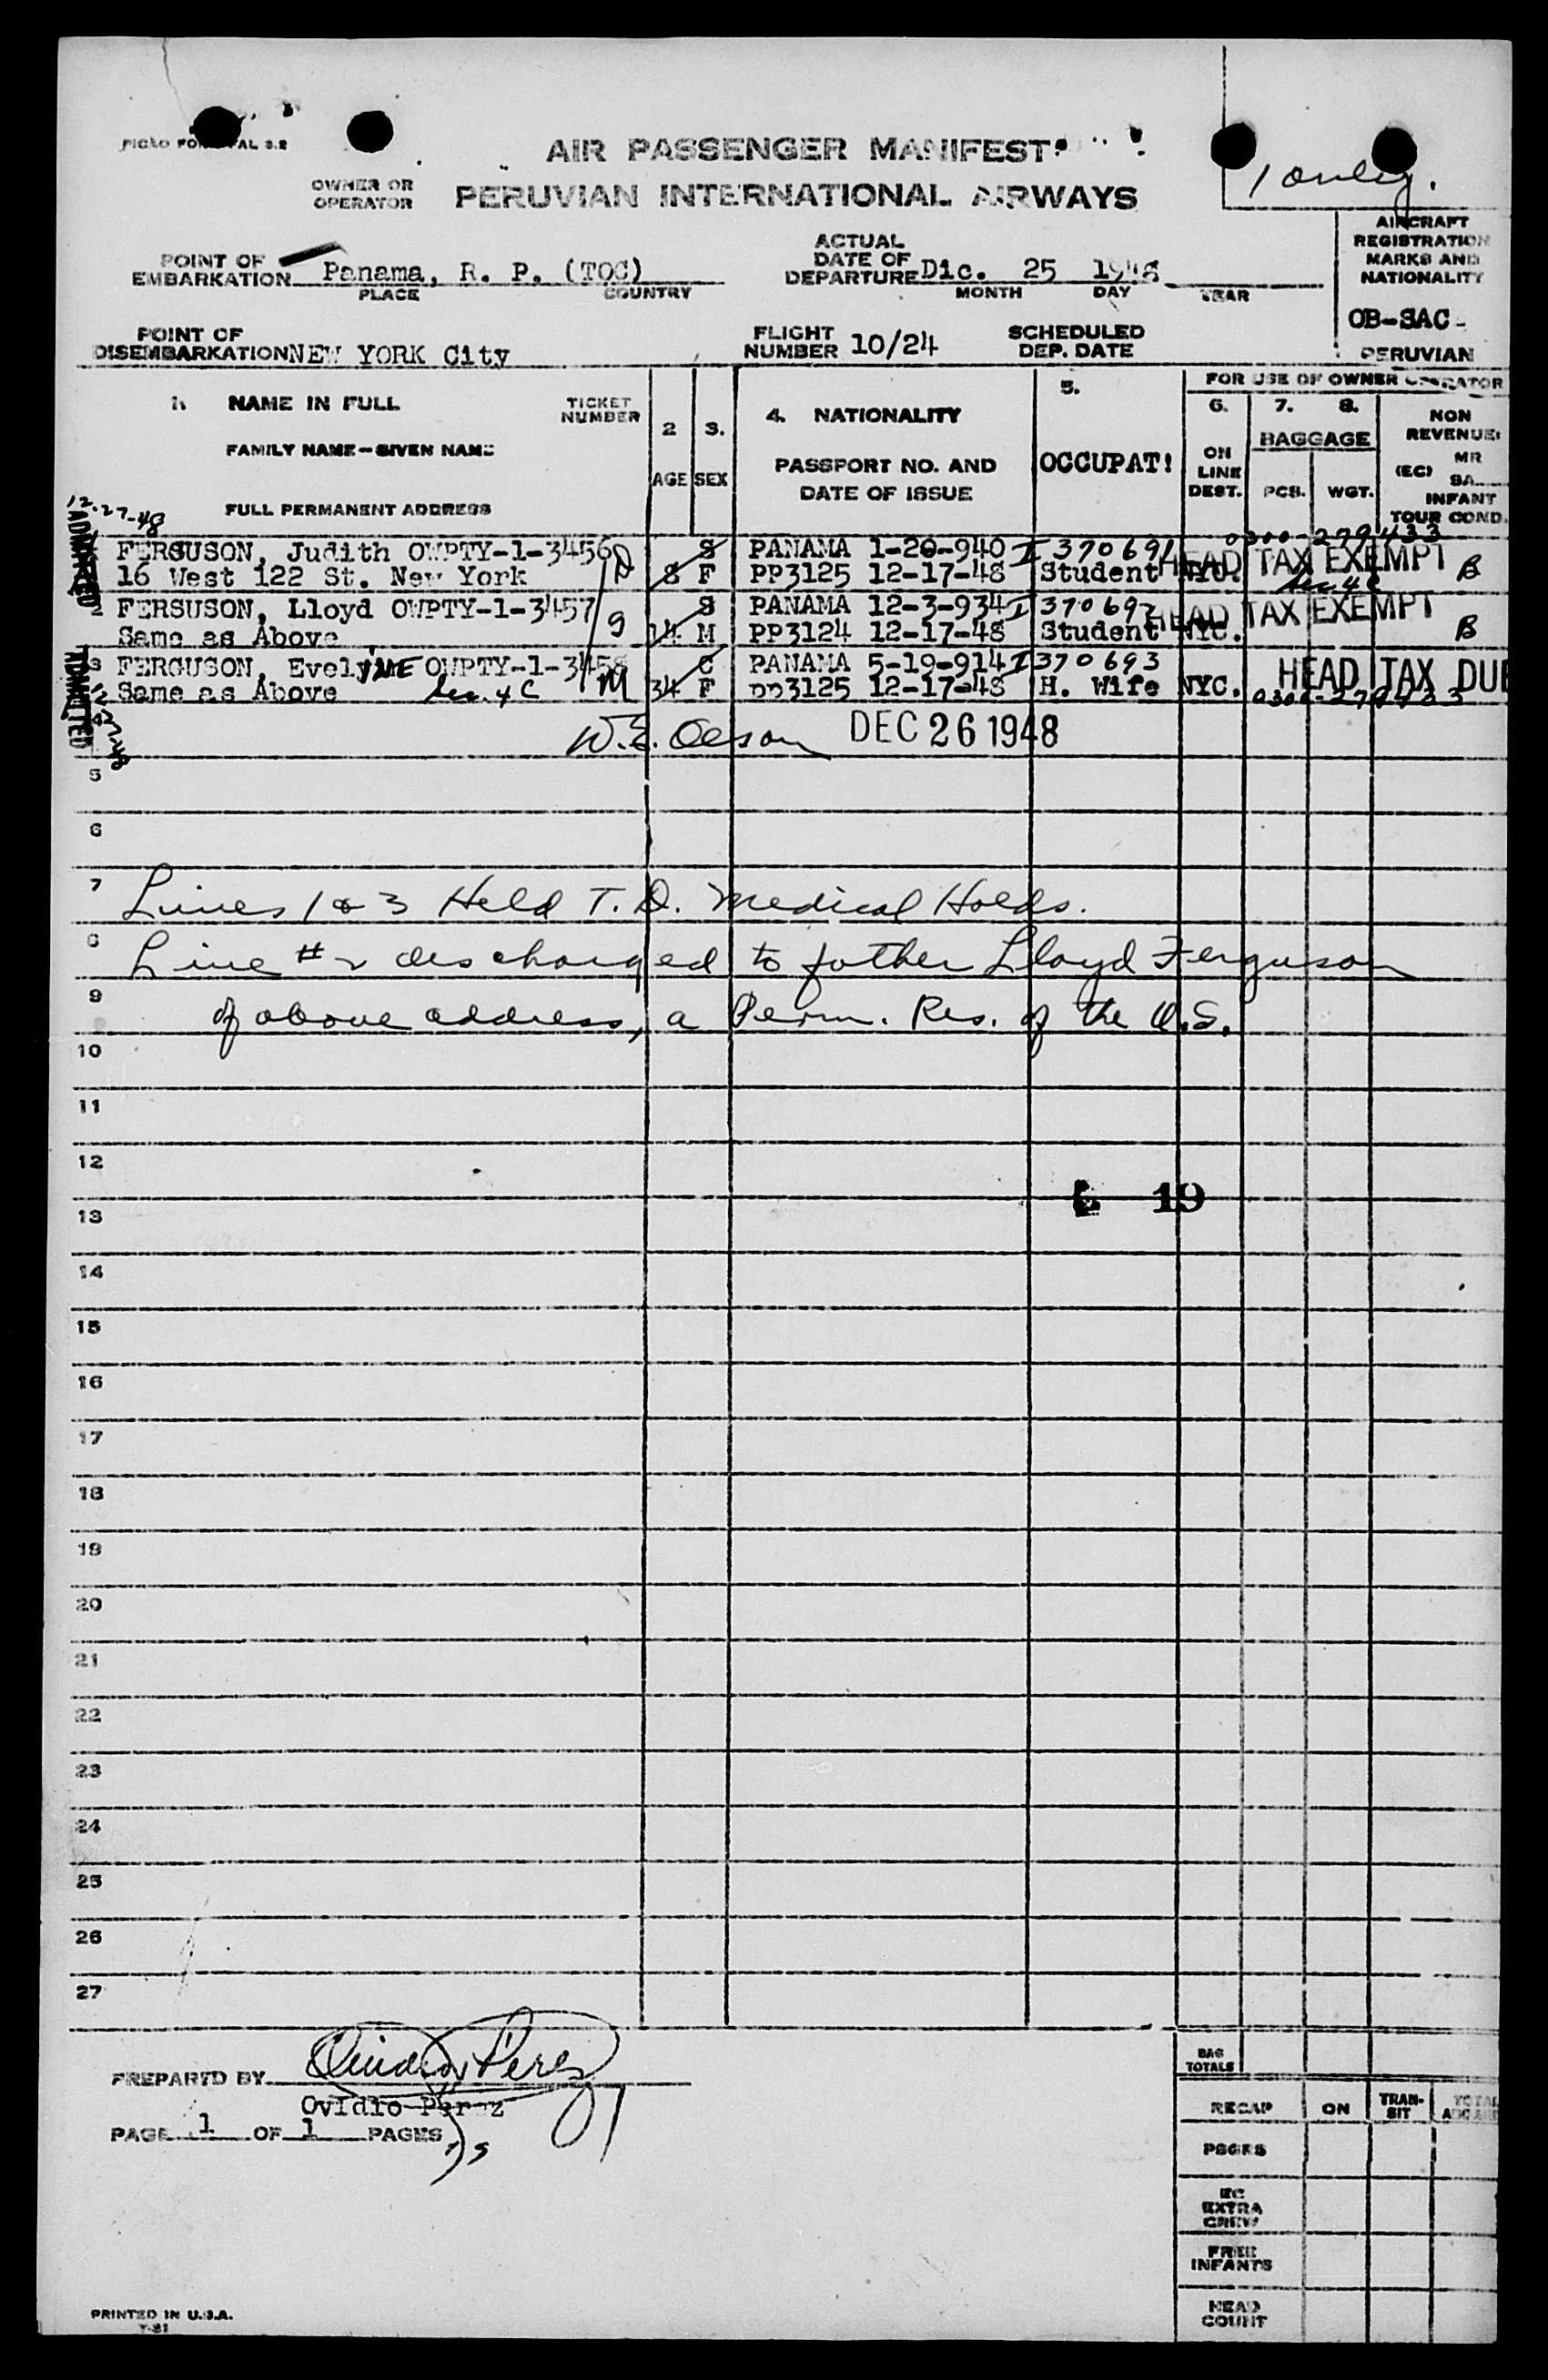 AIR PASSENGER MANIFEST
1 only.
OWNER OR OPERATOR PERUVIAN INTERNATIONAL AIRWAYS
POINT OF EMBARKATION Panama, R. P. (TOC)
PLACE COUNTRY
ACTUAL DATE OF DEPARTURE Dic. 25 1948
MONTH DAY YEAR
AIRCRAFT REGISTRATION MARKS AND NATIONALITY
OB-SAC-
PERUVIAN
POINT OF DISEMBARKATION NEW YORK City
FLIGHT NUMBER 10/24
SCHEDULED DEP. DATE
1. NAME IN FULL
TICKET NUMBER
FAMILY NAME-GIVEN NAME
FULL PERMANENT ADDRESS
2 AGE
3. SEX
4. NATIONALITY
PASSPORT NO. AND
DATE OF ISSUE
5. OCCUPAT!
FOR USE OF OWNER OPERATOR
6. ON LINE DEST.
7. 8. BAGGAGE
PCS. WGT.
NON REVENUE:
(EC) MR
SA
INFANT
TOUR COND.
12-27-48
ADMITTED
FERGUSON, Judith OWPTY-1-3456 S PANAMA 1-20-940 I 370691 0300-279433
16 West 122 St. New York 8 F PP3125 12-17-48 Student NYC. HEAD TAX EXEMPT B
Sec 4 C
2 FERSUSON, Lloyd OWPTY-1-3457 S PANAMA 12-3-934 I 370692
Same as Above 14 M PP3124 12-17-48 Student NYC. HEAD TAX EXEMPT B
3 FERGUSON, EvelyiNE OWPTY-1-3458 C PANAMA 5-19-914 I 370693
Same as Above Sec. 4 C M 34 F PP3125 12-17-48 H. Wife NYC. HEAD TAX DUE
0300-279433
ADMITTED
12-27-48
W.E. Oeson DEC 26 1948
5
6
7 Lines 1 & 3 Held T.D. Medical Holds.
8 Line #2 discharged to father Lloyd Ferguson
9 of above address, a Perm. Res. of the U.S.
10
11
12
19
13
14
15
16
17
18
19
20
21
22
23
24
25
26
27
PREPARED BY Ovidio Perez
Ovidio Perez
PAGE 1 OF 1 PAGES
BAG TOTALS
RECAP ON TRAN-SIT TOTAL
PSGRS
EC EXTRA CREW
FREE INFANTS
HEAD COUNT
PRINTED IN U.S.A.